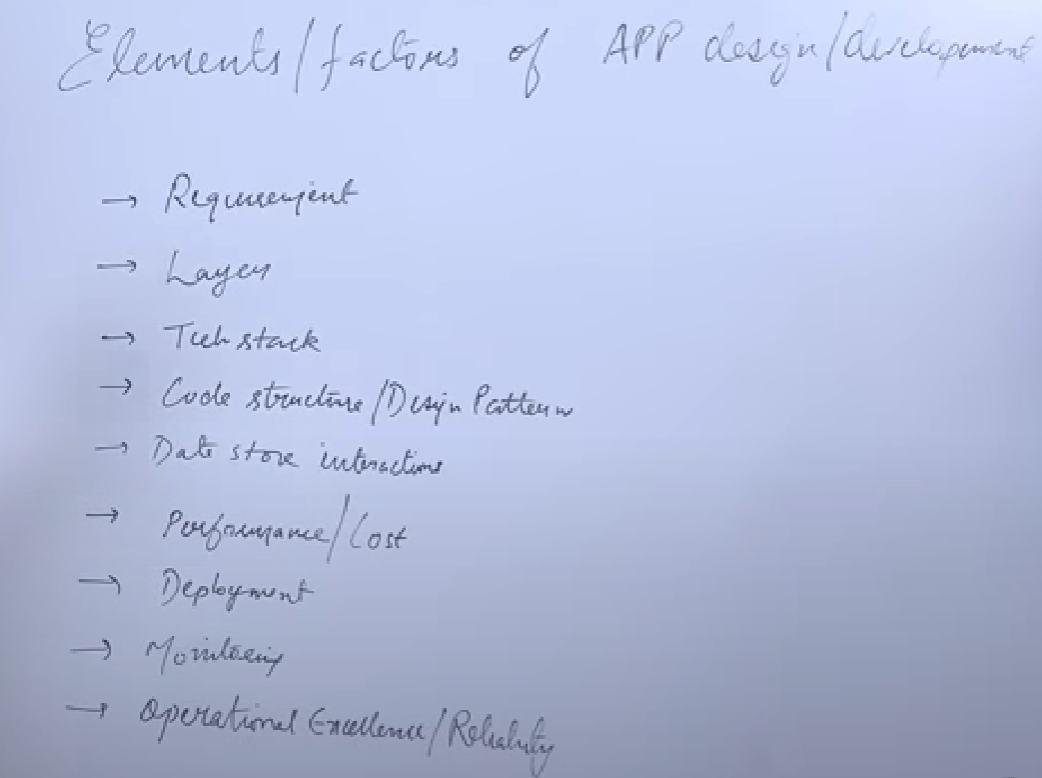 Elements/factors of APP design/development
→ Requirement
→ Layers
→ Tech stack
→ Code structure/Design Pattern
→ Data store interactions
→ Performance/Cost
→ Deployment
→ Monitoring
→ Operational Excellence/Reliability